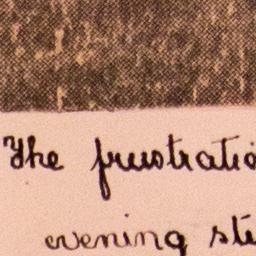 The frustratio
evening ste